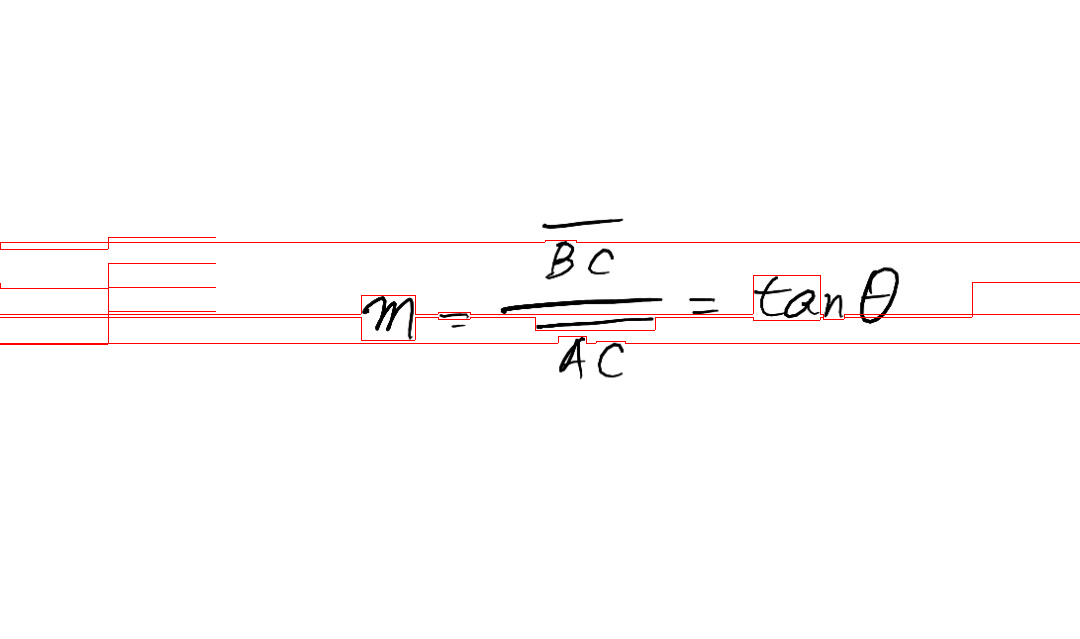 $m = \frac{\overline{BC}}{\overline{AC}} = \tan\theta$